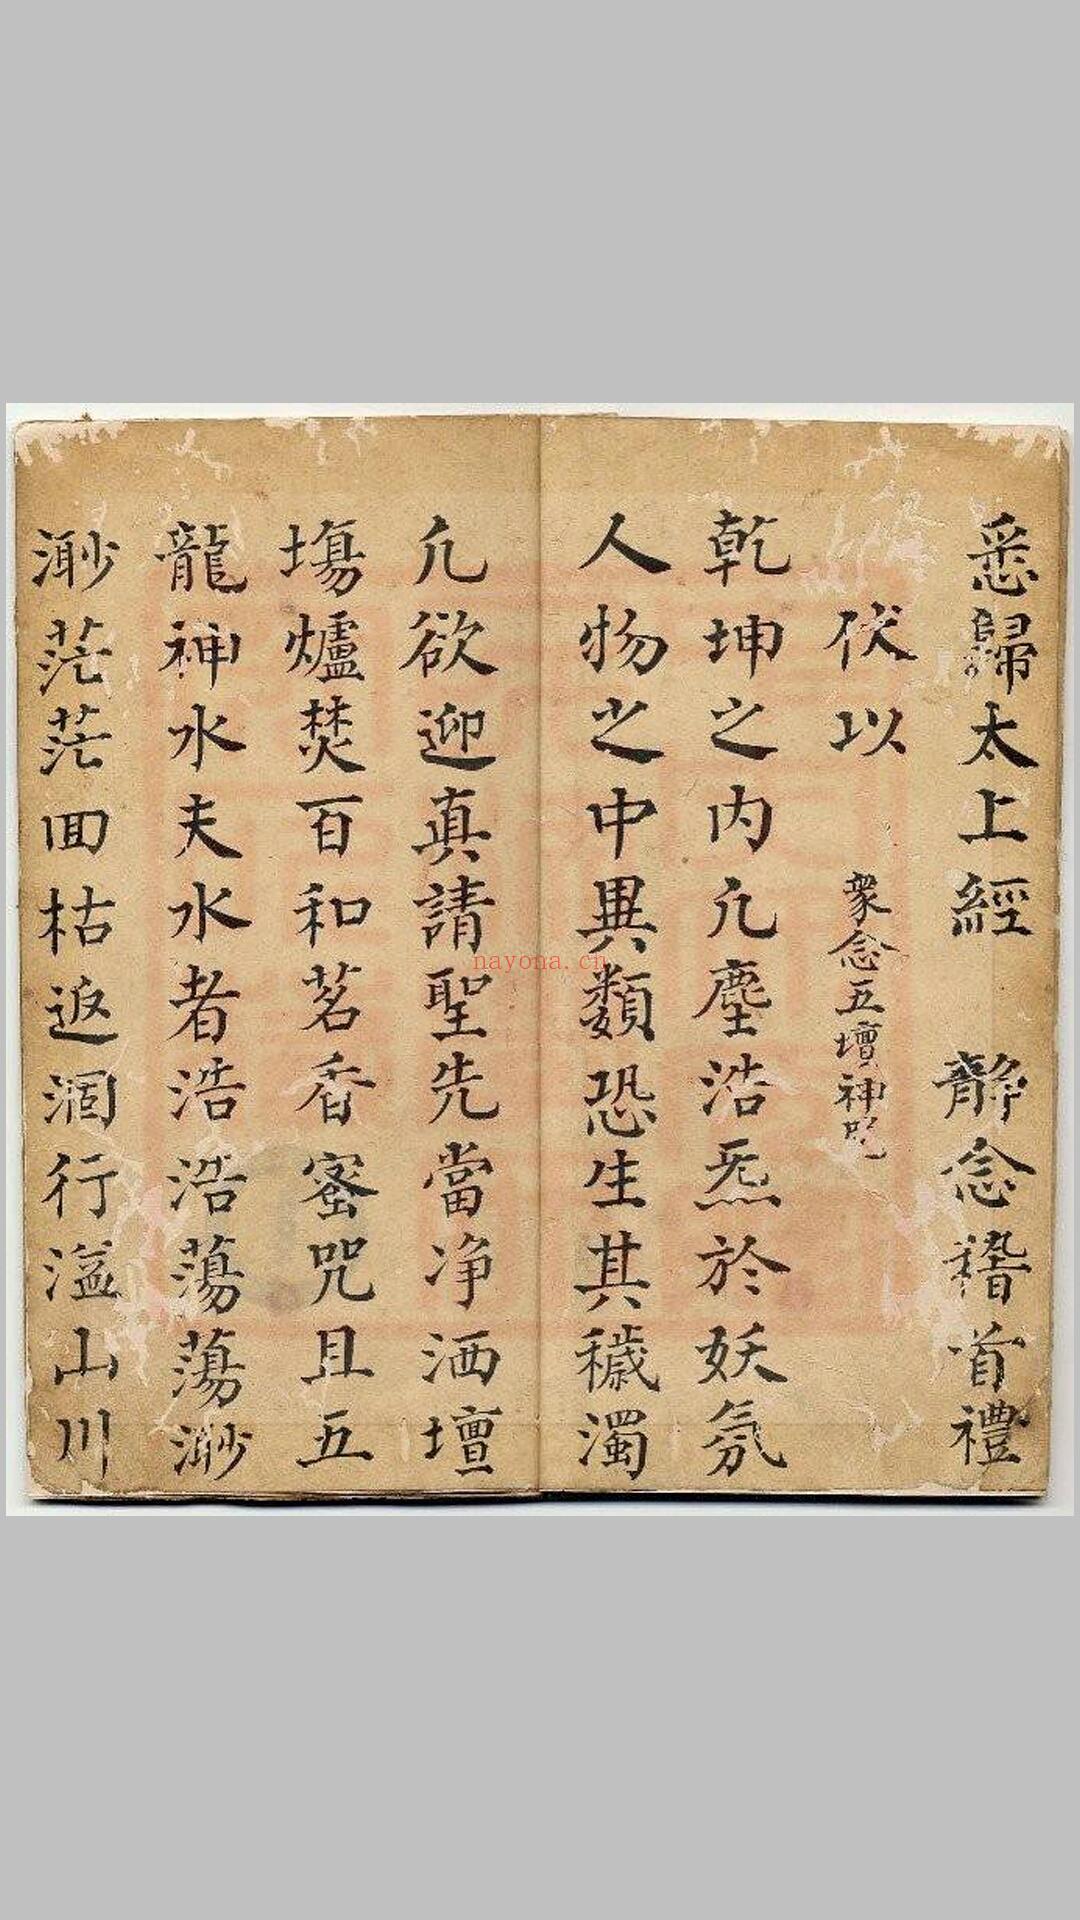 悉歸太上經　靜念稽首禮
伏以　衆念五壇神咒
乾坤之内凢塵浩炁於妖氛
人物之中異類恐生其穢濁
凢欲迎真請聖先當净洒壇
塲爐焚百和茗香蜜咒且五
龍神水夫水者浩浩蕩蕩渺
渺茫茫囬枯返涸行溢山川
nayona.cn